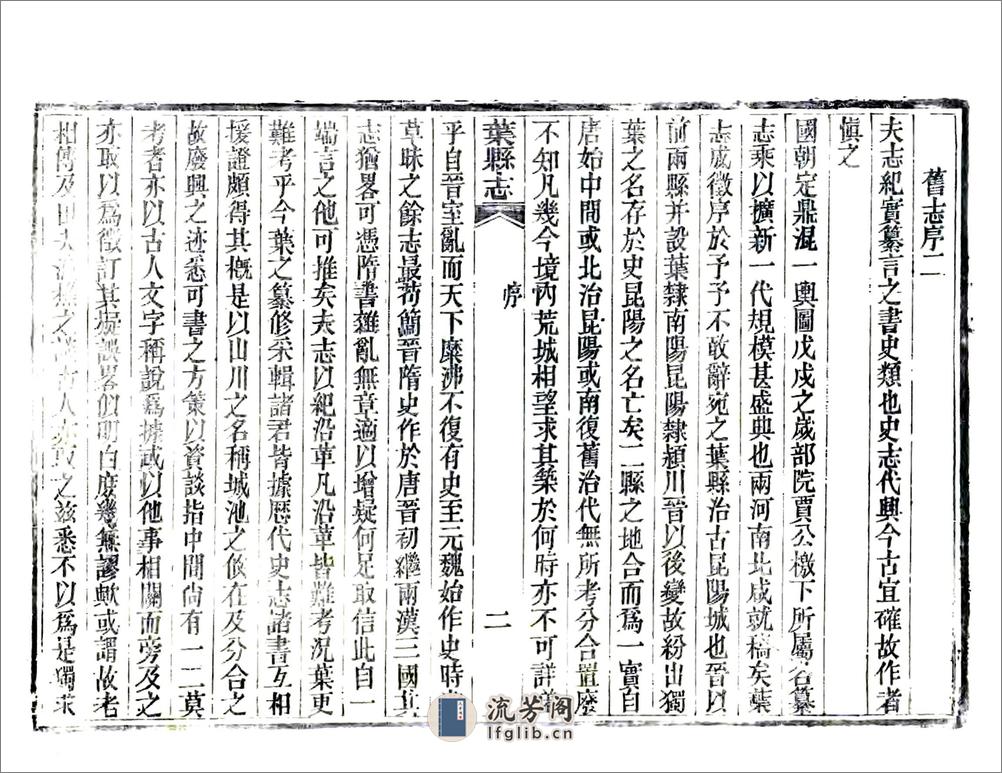 舊志序二
夫志紀實纂言之書史類也史志代興今古宜確故作者
慎之
國朝定鼎混一輿圖戊戌之歲部院賈公檄下所屬各纂
志乘以擴新一代規模甚盛典也兩河南北咸就稿矣葉
志成徵序於予予不敢辭宛之葉縣治古昆陽城也晉以
前兩縣并設葉隸南陽昆陽隸潁川晉以後變故紛出獨
葉之名存於史昆陽之名亡矣二縣之地合而爲一實自
唐始中間或北治昆陽或南復舊治代無所考分合置廢
不知凡幾今境內荒城相望求其築於何時亦不可詳
葉縣志
序
二
乎自晉室亂而天下糜沸不復有史至元魏始作史時
草昧之餘志最苟簡晉隋史作於唐晉初繼兩漢三國其
志猶畧可憑隋書雜亂無章適以增疑何足取信此自一
端言之他可推矣夫志以紀沿革凡沿革皆難考況葉更
難考乎今葉之纂修采輯諸君皆據歷代史志諸書互相
援證頗得其槪是以山川之名稱城池之條在及分合之
故廢興之迹悉可書之方策以資談指中間尚有一二莫
考者亦以古人文字稱說爲據或以他事相關而旁及之
亦取以爲徵訂其疑誤畧似明白庶幾無謬歟或謂故老
相傳及之古人亦取之玆悉不以爲是獨
流芳阁
lfglib.cn